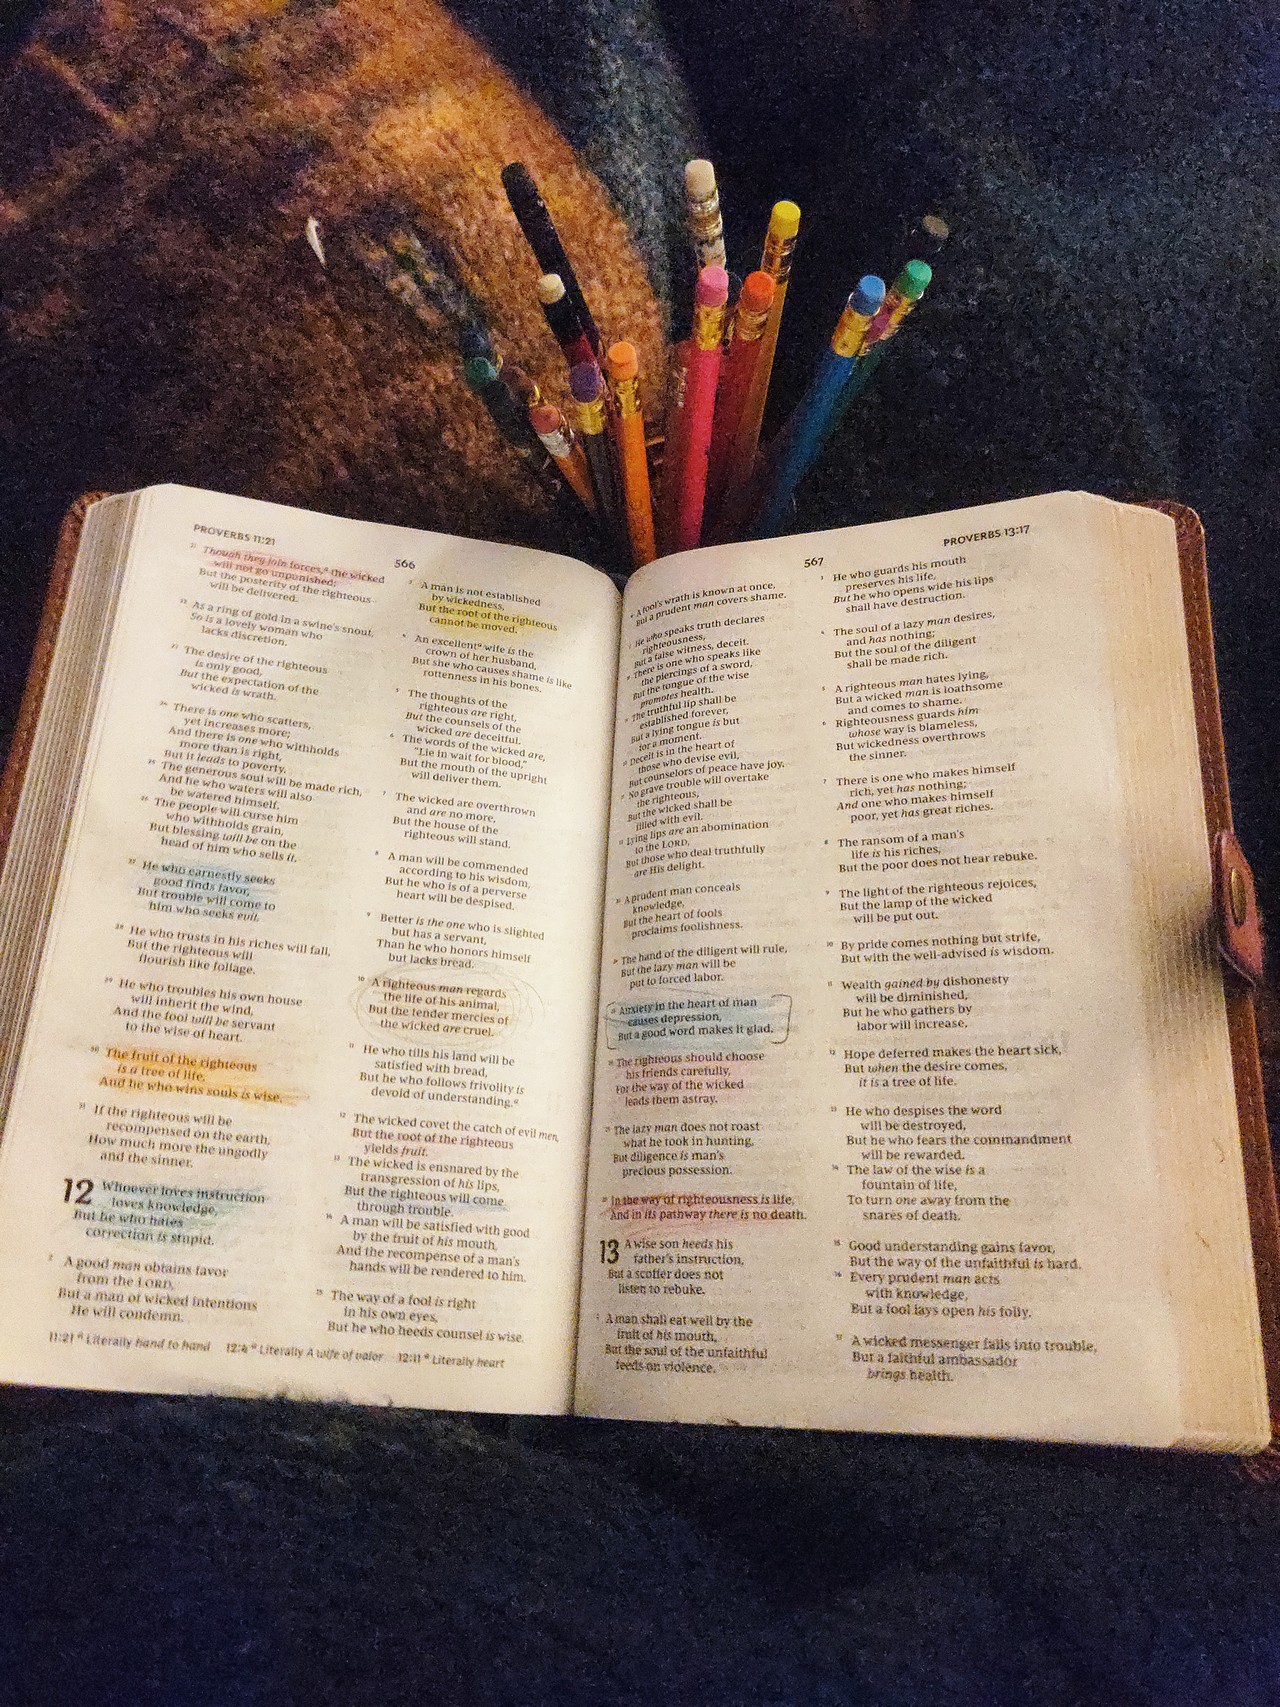 PROVERBS 11:21
566
21 Though they join forces,a the wicked
will not go unpunished;
But the posterity of the righteous
will be delivered.
22 As a ring of gold in a swine's snout,
So is a lovely woman who
lacks discretion.
23 The desire of the righteous
is only good,
But the expectation of the
wicked is wrath.
24 There is one who scatters,
yet increases more;
And there is one who withholds
more than is right,
But it leads to poverty.
25 The generous soul will be made rich,
And he who waters will also
be watered himself.
26 The people will curse him
who withholds grain,
But blessing will be on the
head of him who sells it.
27 He who earnestly seeks
good finds favor,
But trouble will come to
him who seeks evil.
28 He who trusts in his riches will fall,
But the righteous will
flourish like foliage.
29 He who troubles his own house
will inherit the wind,
And the fool will be servant
to the wise of heart.
30 The fruit of the righteous
is a tree of life,
And he who wins souls is wise.
31 If the righteous will be
recompensed on the earth,
How much more the ungodly
and the sinner.
12 Whoever loves instruction
loves knowledge,
But he who hates
correction is stupid.
2 A good man obtains favor
from the LORD,
But a man of wicked intentions
He will condemn.
3 A man is not established
by wickedness,
But the root of the righteous
cannot be moved.
4 An excellenta wife is the
crown of her husband,
But she who causes shame is like
rottenness in his bones.
5 The thoughts of the
righteous are right,
But the counsels of the
wicked are deceitful.
6 The words of the wicked are,
"Lie in wait for blood,"
But the mouth of the upright
will deliver them.
7 The wicked are overthrown
and are no more,
But the house of the
righteous will stand.
8 A man will be commended
according to his wisdom,
But he who is of a perverse
heart will be despised.
9 Better is the one who is slighted
but has a servant,
Than he who honors himself
but lacks bread.
10 A righteous man regards
the life of his animal,
But the tender mercies of
the wicked are cruel.
11 He who tills his land will be
satisfied with bread,
But he who follows frivolity is
devoid of understanding.a
12 The wicked covet the catch of evil men,
But the root of the righteous
yields fruit.
13 The wicked is ensnared by the
transgression of his lips,
But the righteous will come
through trouble.
14 A man will be satisfied with good
by the fruit of his mouth,
And the recompense of a man's
hands will be rendered to him.
15 The way of a fool is right
in his own eyes,
But he who heeds counsel is wise.
11:21 a Literally hand to hand 12:4 a Literally A wife of valor 12:11 a Literally heart
567
PROVERBS 13:17
16 A fool's wrath is known at once,
But a prudent man covers shame.
17 He who speaks truth declares
righteousness,
But a false witness, deceit.
18 There is one who speaks like
the piercings of a sword,
But the tongue of the wise
promotes health.
19 The truthful lip shall be
established forever,
But a lying tongue is but
for a moment.
20 Deceit is in the heart of
those who devise evil,
But counselors of peace have joy.
21 No grave trouble will overtake
the righteous,
But the wicked shall be
filled with evil.
22 Lying lips are an abomination
to the LORD,
But those who deal truthfully
are His delight.
23 A prudent man conceals
knowledge,
But the heart of fools
proclaims foolishness.
24 The hand of the diligent will rule,
But the lazy man will be
put to forced labor.
25 Anxiety in the heart of man
causes depression,
But a good word makes it glad.
26 The righteous should choose
his friends carefully,
For the way of the wicked
leads them astray.
27 The lazy man does not roast
what he took in hunting,
But diligence is man's
precious possession.
28 In the way of righteousness is life,
And in its pathway there is no death.
13 A wise son heeds his
father's instruction,
But a scoffer does not
listen to rebuke.
2 A man shall eat well by the
fruit of his mouth,
But the soul of the unfaithful
feeds on violence.
3 He who guards his mouth
preserves his life,
But he who opens wide his lips
shall have destruction.
4 The soul of a lazy man desires,
and has nothing;
But the soul of the diligent
shall be made rich.
5 A righteous man hates lying,
But a wicked man is loathsome
and comes to shame.
6 Righteousness guards him
whose way is blameless,
But wickedness overthrows
the sinner.
7 There is one who makes himself
rich, yet has nothing;
And one who makes himself
poor, yet has great riches.
8 The ransom of a man's
life is his riches,
But the poor does not hear rebuke.
9 The light of the righteous rejoices,
But the lamp of the wicked
will be put out.
10 By pride comes nothing but strife,
But with the well-advised is wisdom.
11 Wealth gained by dishonesty
will be diminished,
But he who gathers by
labor will increase.
12 Hope deferred makes the heart sick,
But when the desire comes,
it is a tree of life.
13 He who despises the word
will be destroyed,
But he who fears the commandment
will be rewarded.
14 The law of the wise is a
fountain of life,
To turn one away from the
snares of death.
15 Good understanding gains favor,
But the way of the unfaithful is hard.
16 Every prudent man acts
with knowledge,
But a fool lays open his folly.
17 A wicked messenger falls into trouble,
But a faithful ambassador
brings health.